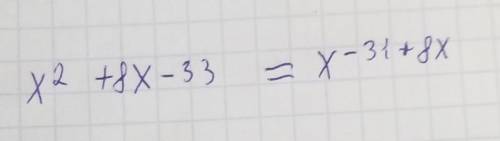 x² + 8x - 33 = x^{-31 + 8x}